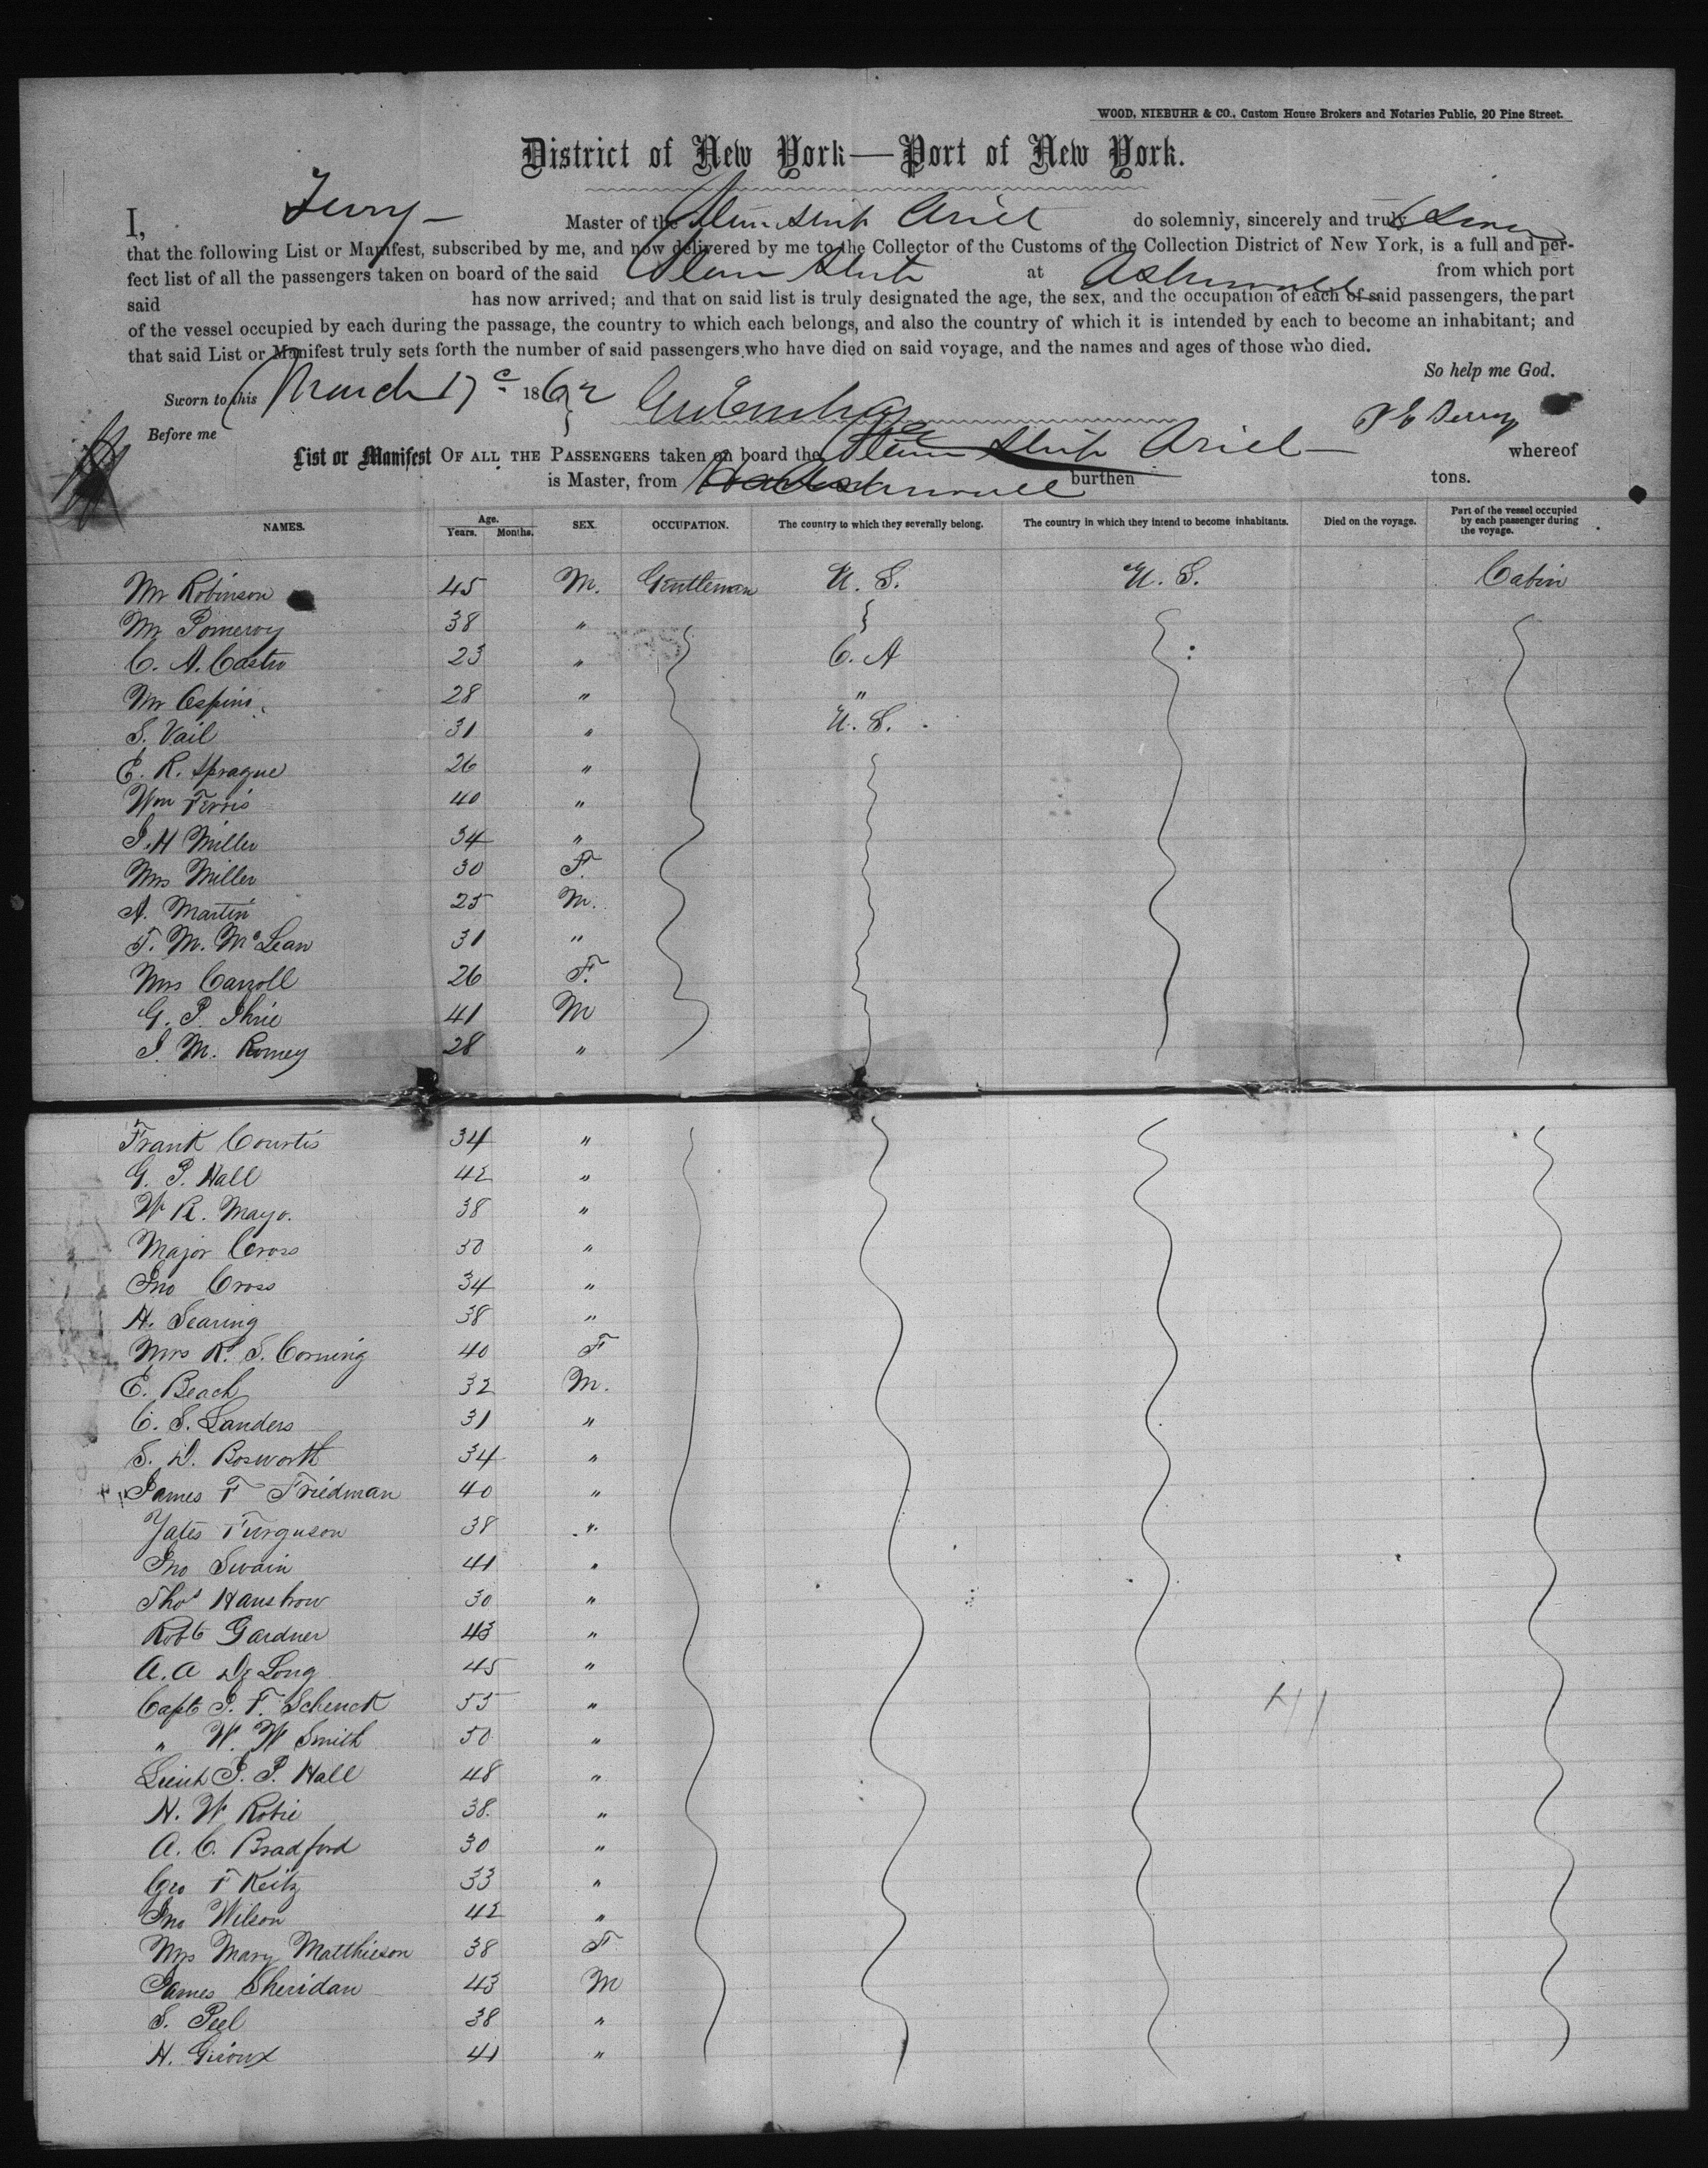 WOOD, NIEBUHR & CO., Custom House Brokers and Notaries Public, 20 Pine Street.
District of New York—Port of New York.
I, Terry Master of the Steam Ship Ariel do solemnly, sincerely and truly Swear
that the following List or Manifest, subscribed by me, and now delivered by me to the Collector of the Customs of the Collection District of New York, is a full and per-
fect list of all the passengers taken on board of the said Steam Ship at Aspinwall from which port
said has now arrived; and that on said list is truly designated the age, the sex, and the occupation of each of said passengers, the part
of the vessel occupied by each during the passage, the country to which each belongs, and also the country of which it is intended by each to become an inhabitant; and
that said List or Manifest truly sets forth the number of said passengers who have died on said voyage, and the names and ages of those who died.
So help me God.
Sworn to this March 17 1862
Before me
List or Manifest OF ALL THE PASSENGERS taken on board the Steam Ship Ariel whereof
is Master, from Aspinwall burthen tons.
NAMES. Age. Years. Months. SEX. OCCUPATION. The country to which they severally belong. The country in which they intend to become inhabitants. Died on the voyage. Part of the vessel occupied by each passenger during the voyage.
Mr Robinson 45 M. Gentleman U. S. U. S. Cabin
Mr Pomeroy 38 "
C. A. Castro 23 " C. A
Mr 28 " "
S. Vail 31 " U. S.
E. R. Sprague 26 "
Wm Ferris 40 "
J. H Miller 34 "
Mrs Miller 30 F.
A. Martin 25 M.
T. M. McLean 31 "
Mrs Carroll 26 F.
G. P. Ihrie 41 M
J. M. Romey 28 "
Frank Courtis 34 "
G. P. Hall 42 "
W R. Mayo. 38 "
Major Cross 50 "
Jno Cross 34 "
H. Searing 38 "
Mrs R. S. Corning 40 F
E. Beach 32 M.
C. S. Landers 31 "
S. D. Bosworth 34 "
James F Friedman 40 "
Yates Ferguson 38 "
Jno Swain 41 "
Thos 30 "
Robt Gardner 43 "
A. A De Long 45 "
Capt J. F. Schenck 55 "
" W. W Smith 50 "
Lieut J. P. Hall 48 "
H. W Robie 38. "
A. C. Bradford 30 "
Geo F Keitz 33 "
Jno Wilson 42 "
Mrs Mary Matthieson 38 F
James Sheridan 43 M
S. Peel 38 "
H. Giroux 41 "